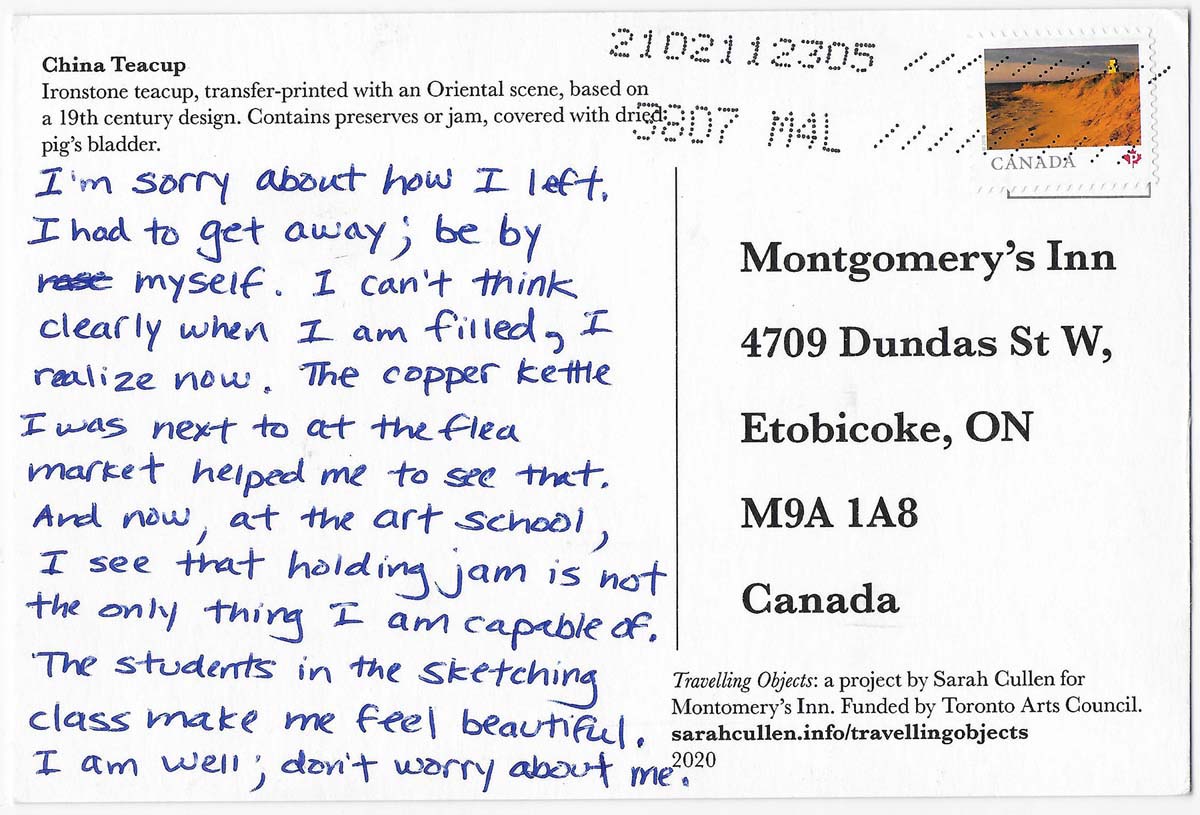 2102112305
China Teacup
Ironstone teacup, transfer-printed with an Oriental scene, based on
a 19th century design. Contains preserves or jam, covered with dried
pig's bladder.
9807 M4L
CANADA
P
I'm sorry about how I left.
I had to get away; be by
myself. I can't think
clearly when I am filled, I
realize now. The copper kettle
I was next to at the flea
market helped me to see that.
And now, at the art school,
I see that holding jam is not
the only thing I am capable of.
The students in the sketching
class make me feel beautiful.
I am well; don't worry about me.
Montgomery's Inn
4709 Dundas St W,
Etobicoke, ON
M9A 1A8
Canada
Travelling Objects: a project by Sarah Cullen for
Montomery's Inn. Funded by Toronto Arts Council.
sarahcullen.info/travellingobjects
2020